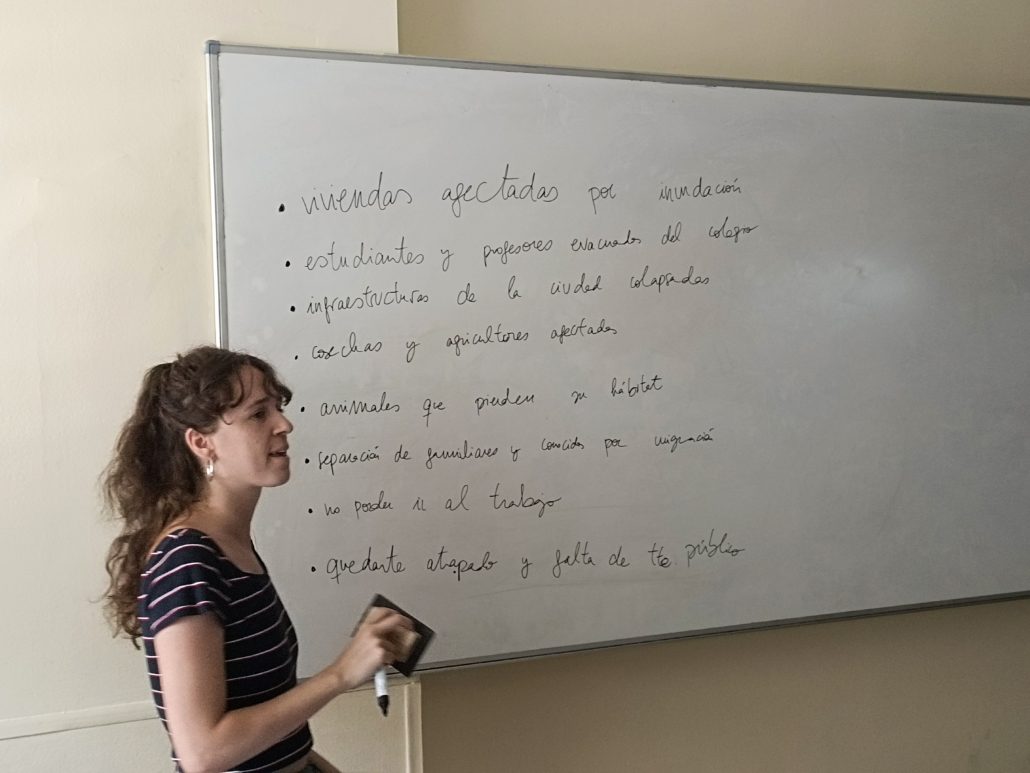 • viviendas afectadas por inundación
• estudiantes y profesores evacuados del colegio
• infraestructuras de la ciudad colapsadas
• cosechas y agricultores afectados
• animales que pierden su hábitat
• separación de familiares y conocidos por migración
• no poder ir al trabajo
• quedarte atrapado y falta de tte. público